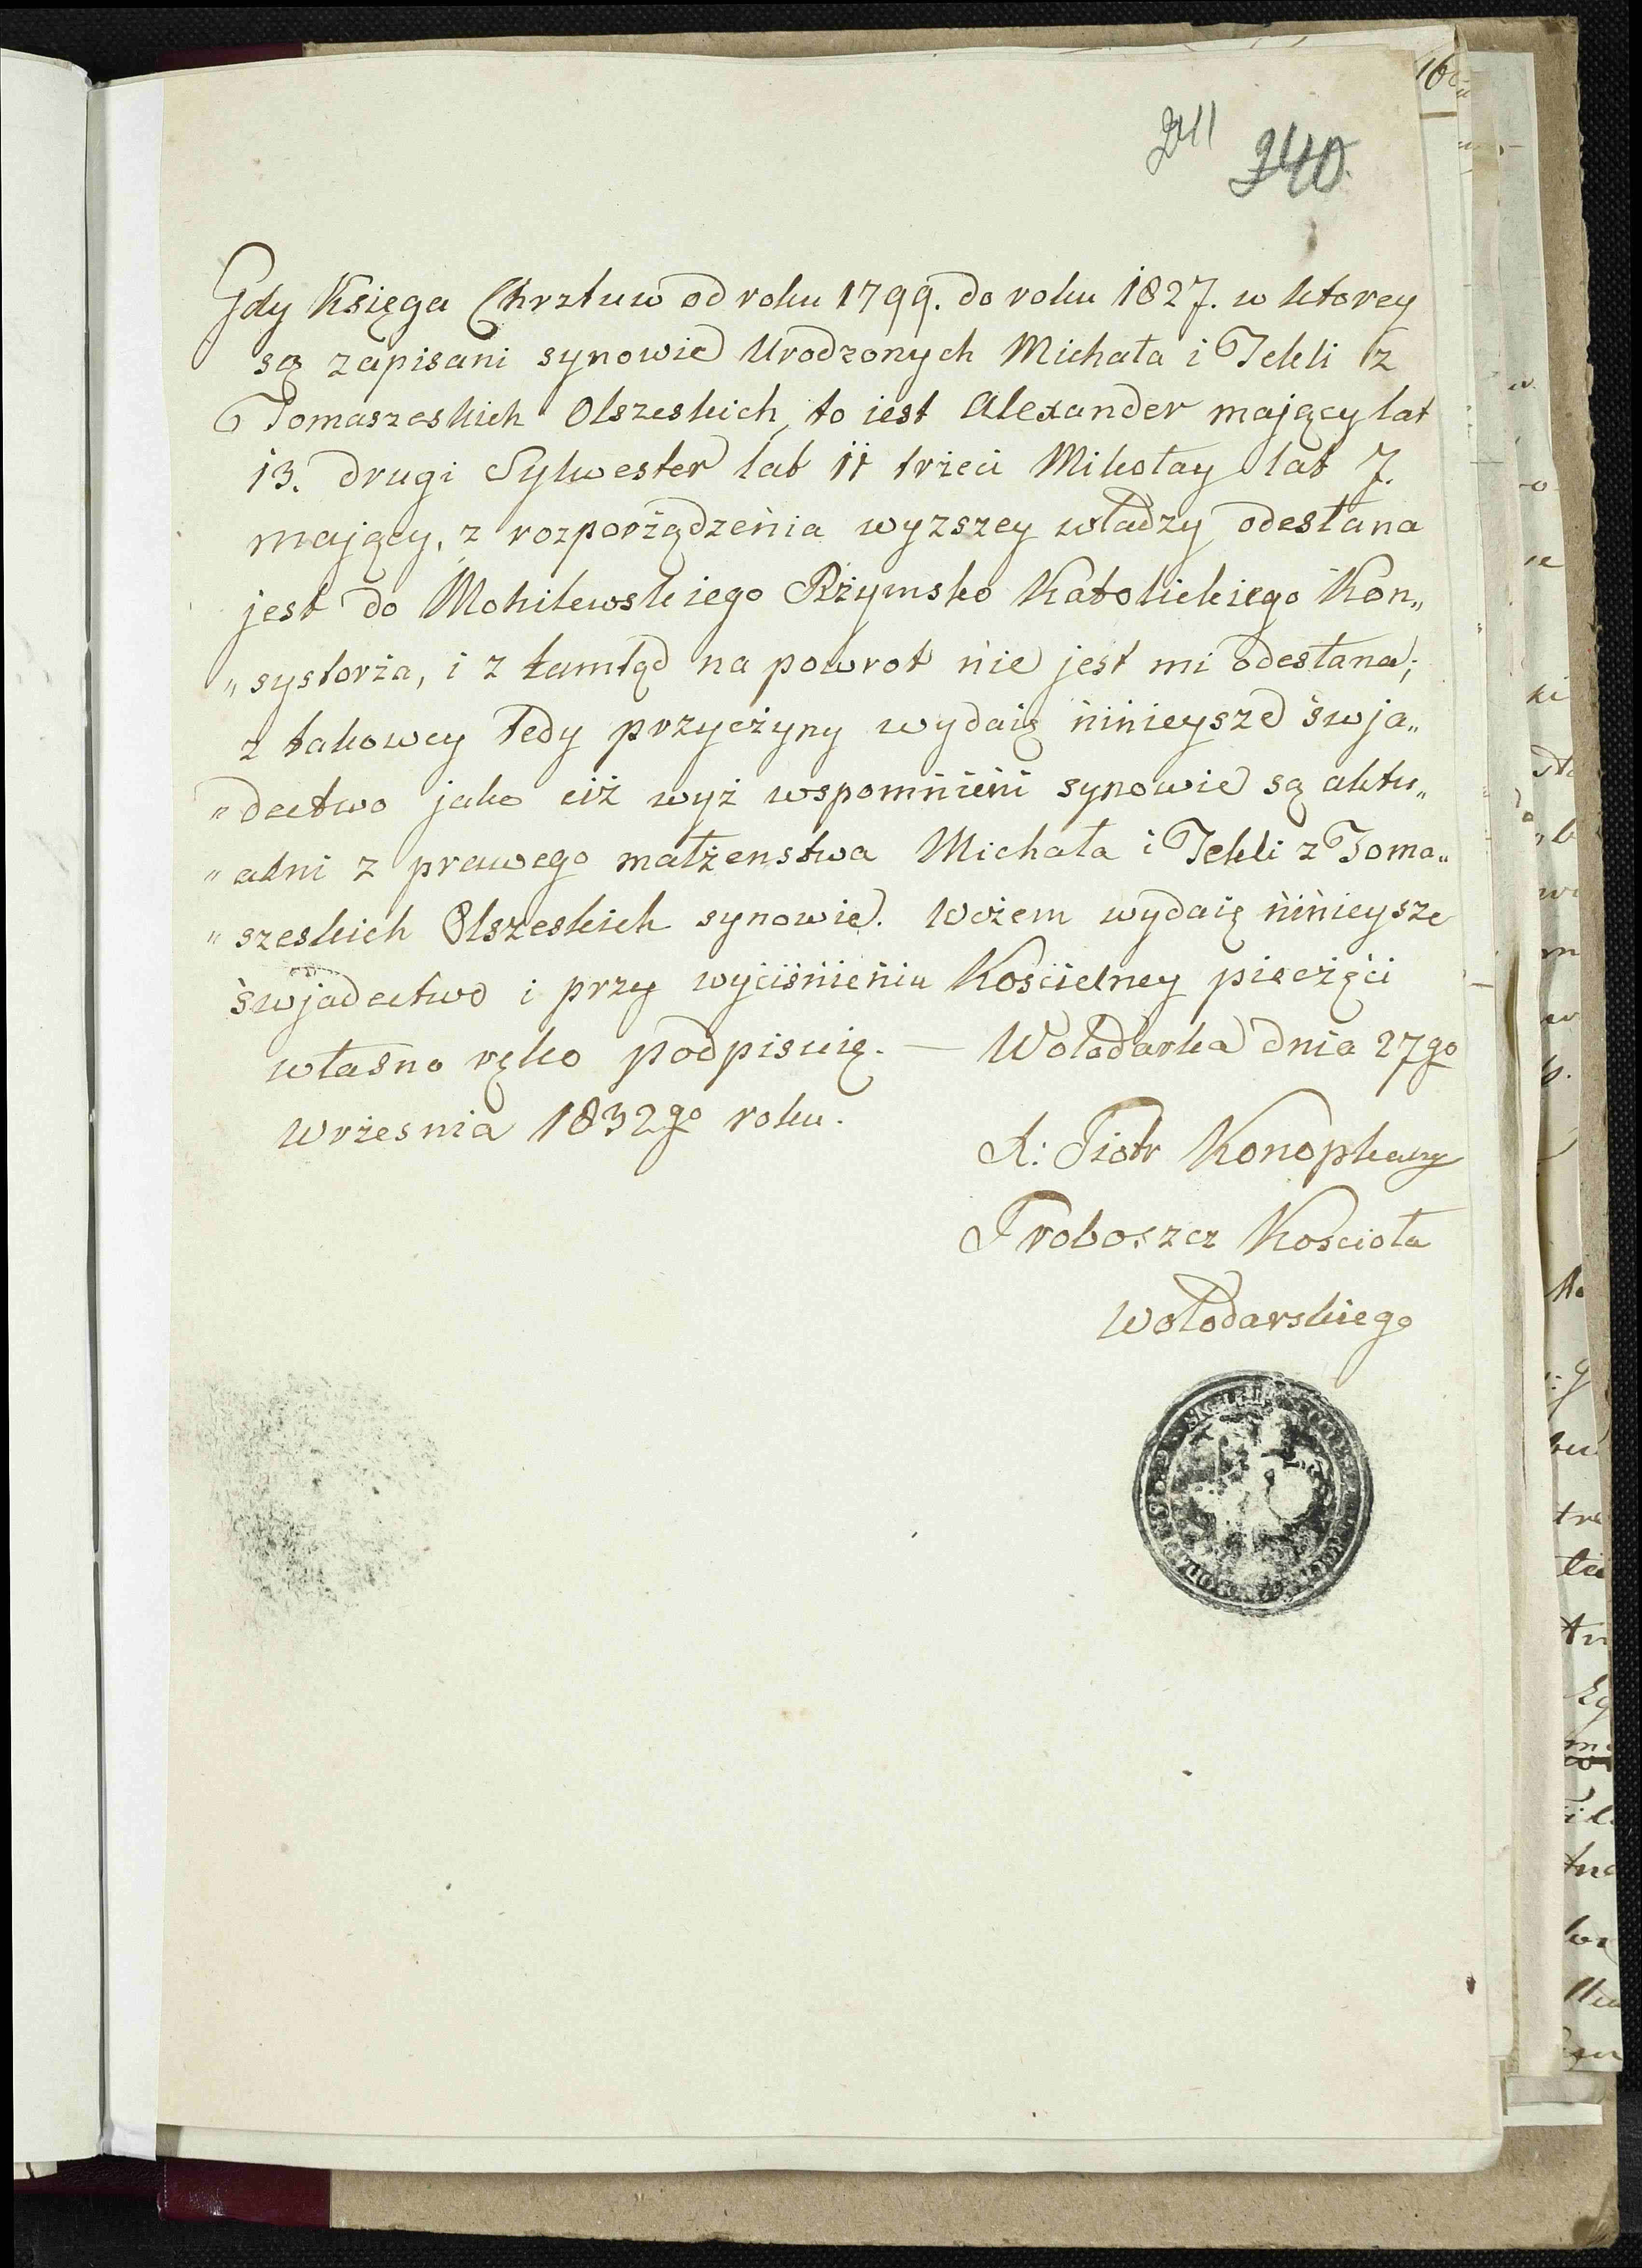 211 340.
Gdy Księga Chrztuw od roku 1799. do roku 1827. w ktorey
są zapisani synowie Urodzonych Michała i Tekli z
Tomaszeskich Olszeskich, to iest Alexander mający lat
13. drugi Sylwester lat 11 trżeci Mikołay lat 7.
mający, z rozporżądzeńia wyzszey władzy odesłana
jest do Mohilewskiego Rżymsko Katolickiego Kon„
„systorża, i z tamtąd na powrot ńie jest mi odesłana;
z takowey tedy przycżyny wydaię ńińieysze świa„
„dectwo jako ciż wyż wspomńieńi synowie są aktu„
„alni z prawego małżenstwa Michała i Tekli z Toma„
„szeskich Olszeskich synowie. Wcżem wydaię ńińieysze
świadectwo i przy wyciśńieńiu Kościelney piecżęci
własno ręko podpisuię. — Wołodarka dnia 27go
Wrżesnia 1832go roku.
X: Piotr
Proboszcz Kościoła
Wołodarskiego